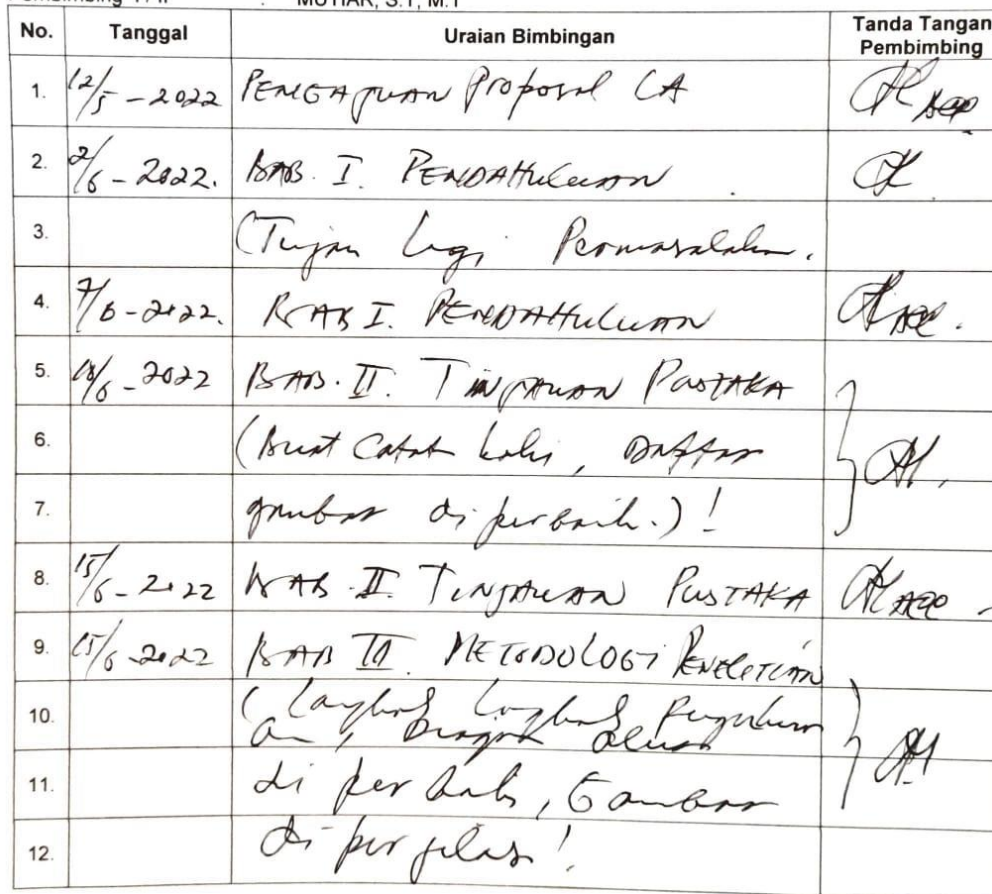 MUTIAR, S.T, M.T
No. Tanggal Uraian Bimbingan Tanda Tangan Pembimbing
1. 12/5 - 2022 PENGAJUAN Proposal LA Acc
2. 2/6 - 2022. BAB. I. PENDAHULUAN
3. (Tinjau lagi Permasalahan.
4. 7/6 - 2022. BAB I. PENDAHULUAN Acc.
5. /6 - 2022 BAB. II. TINJAUAN PUSTAKA
6. (Buat Catat kaki, Daftar
7. gambar di perbaiki.) !
8. 15/6 - 2022 BAB. II. TINJAUAN PUSTAKA ACC
9. 15/6 - 2022 BAB III. METODOLOGI PENELITIAN
10. (Langkah Langkah Pengukur
an, Alur
11. di perbaiki, Gambar
12. di per jelas !